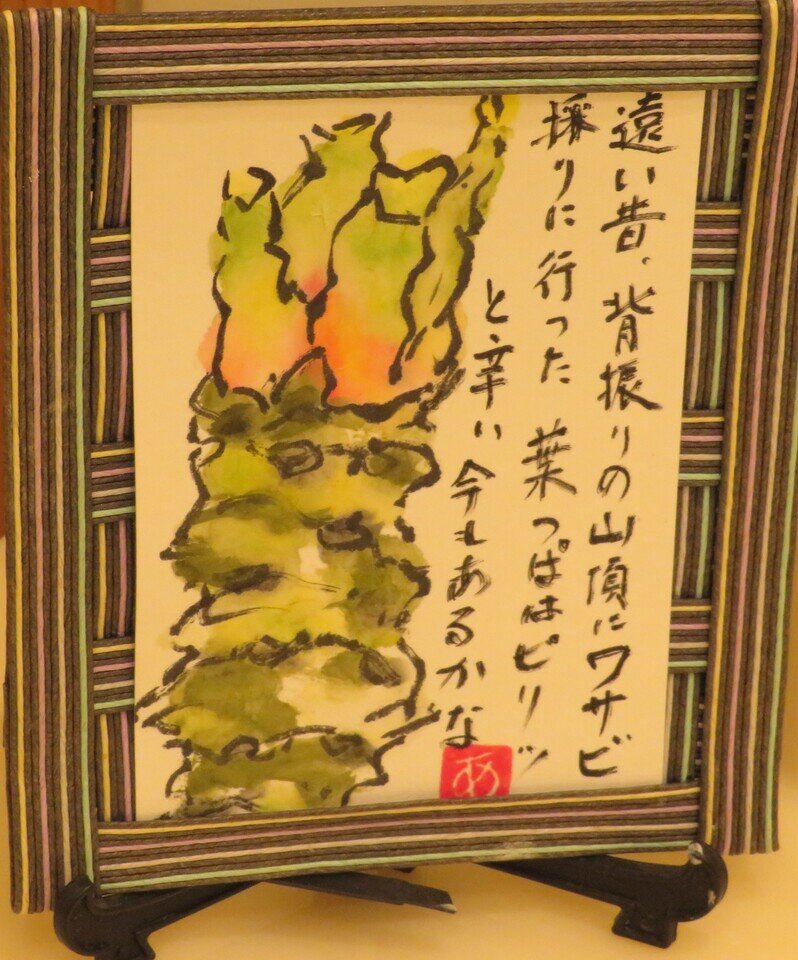 遠い昔、背振りの山頂にワサビ
採りに行った 葉っぱはピリッ
と辛い 今もあるかな
あ